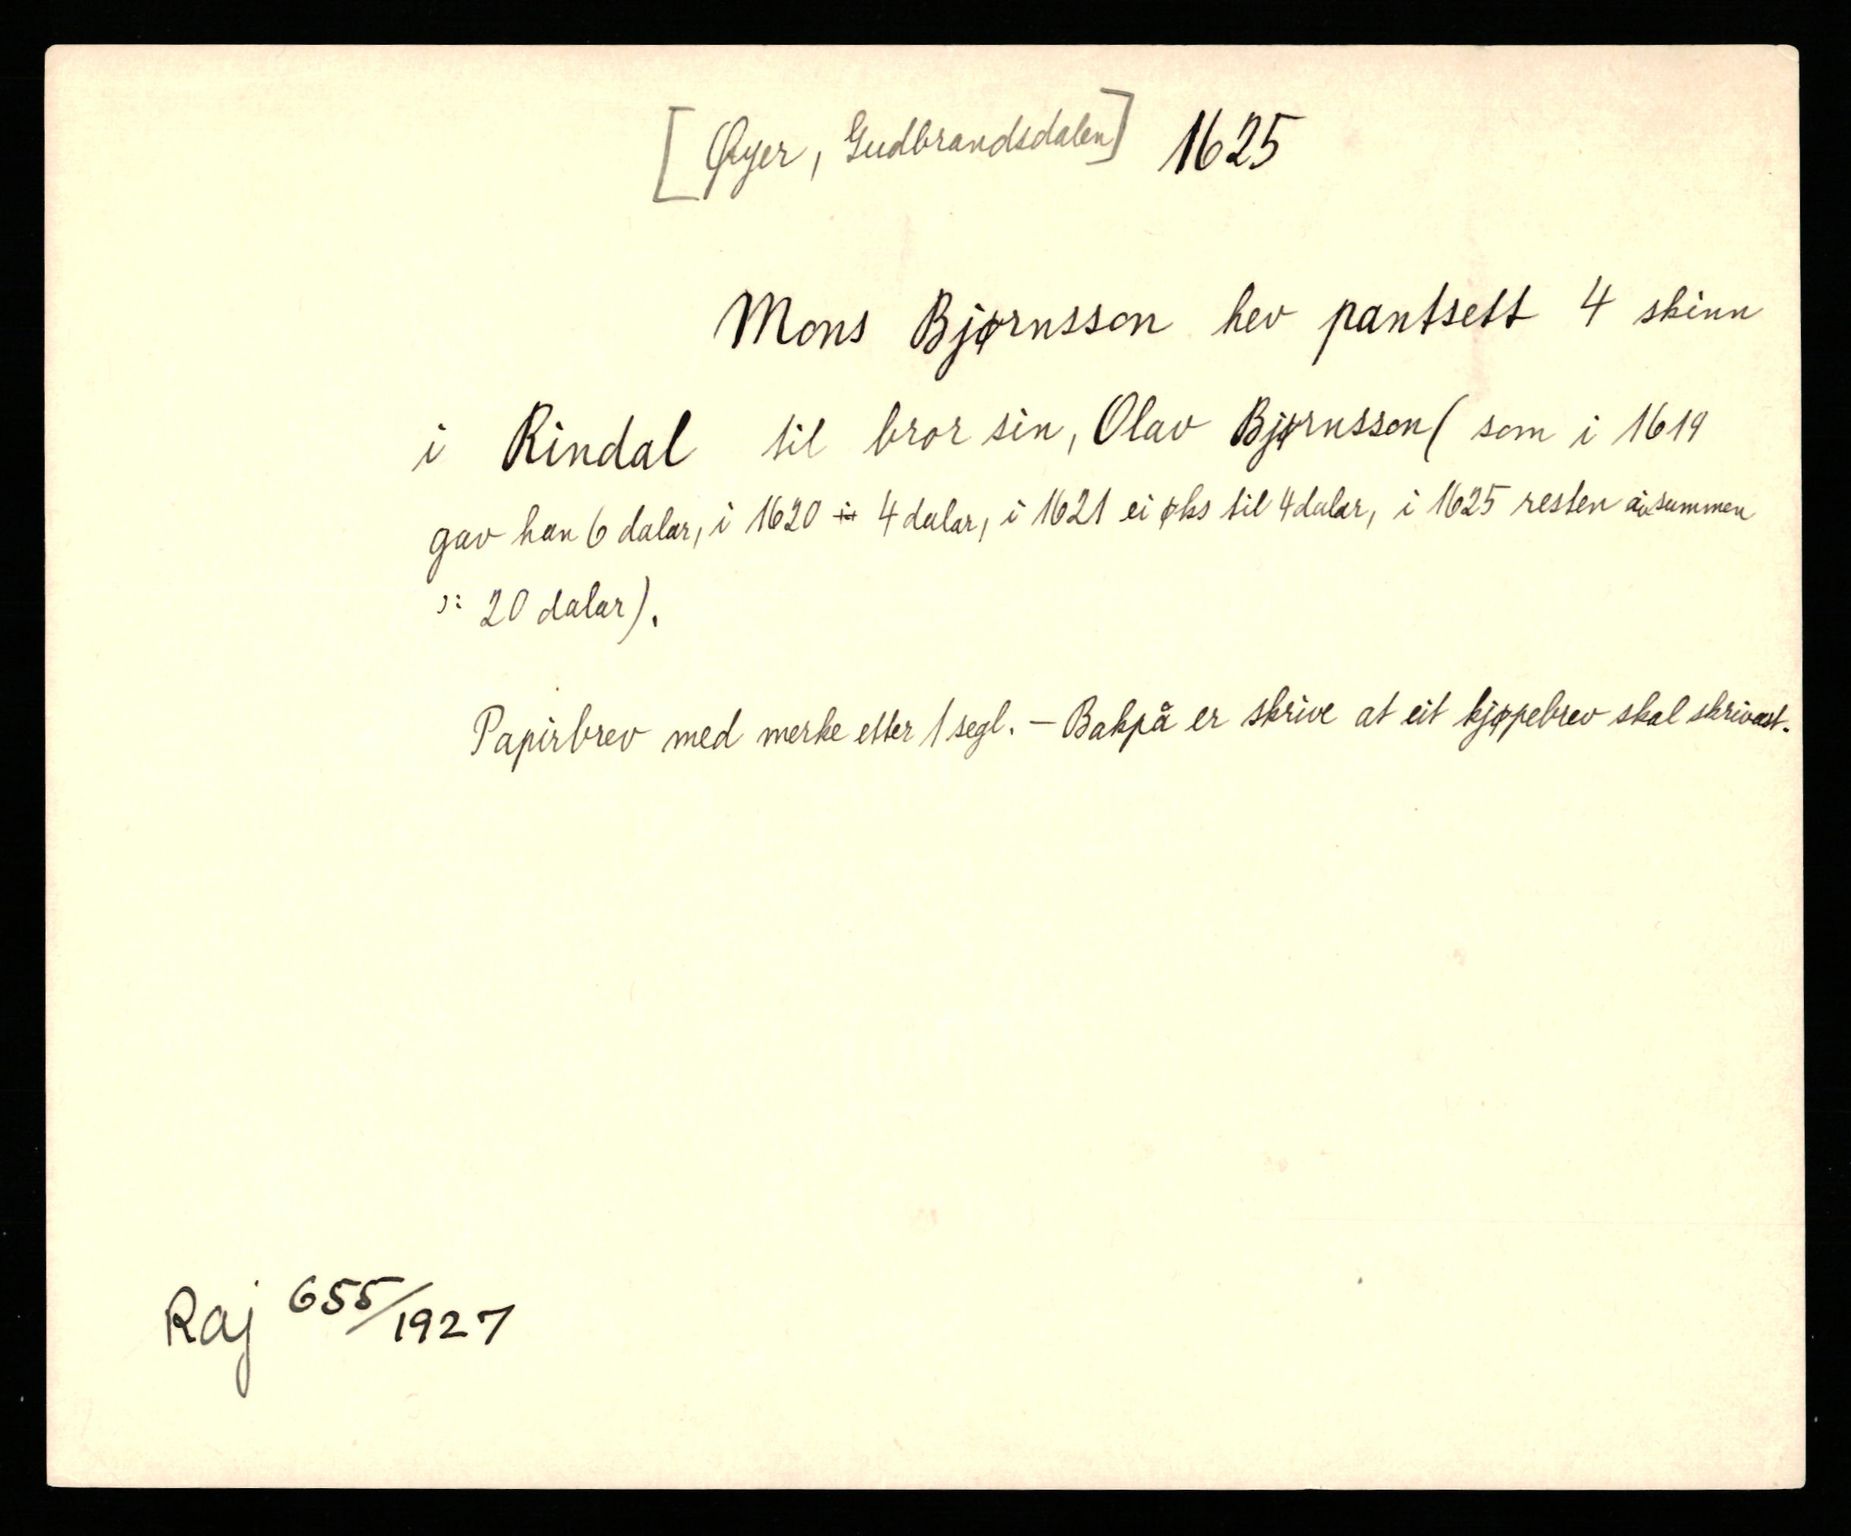 [Øyer, Gudbrandsdalen] 1625
Mons Bjørnsson hev pantsett 4 skinn
i Rindal til bror sin, Olav Bjørnsson (som i 1619
gav han 6 dalar, i 1620 4 dalar, i 1621 ei øks til 4 dalar, i 1625 resten av summen
ɔ: 20 dalar).
Papirbrev med merke etter 1 segl. – Bakpå er skrive at eit kjøpebrev skal skrivast.
Raj 655/1927